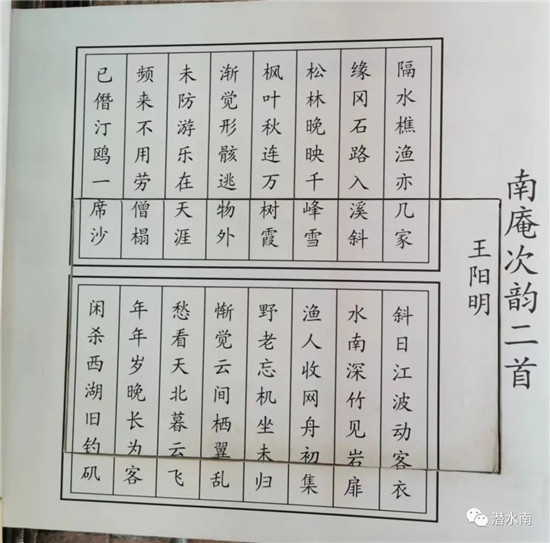 南庵次韵二首
王阳明
隔水樵渔亦几家
缘冈石路入溪斜
松林晚映千峰雪
枫叶秋连万树霞
渐觉形骸逃物外
未防游乐在天涯
频来不用劳僧榻
已僭汀鸥一席沙
斜日江波动客衣
水南深竹见岩扉
渔人收网舟初集
野老忘机坐未归
惭觉云间栖翼乱
愁看天北暮云飞
年年岁晚长为客
闲杀西湖旧钓矶
潜水南